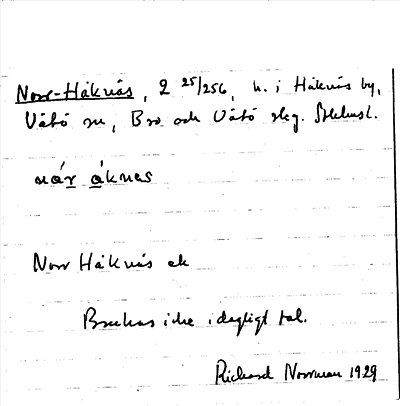 Norr-Håknäs, 2 25/256, h. i Håknäs by,
Vätö sn, Bro och Vätö skg. Sthlmsl.
nár áknes
Norr Håknäs ek
Brukas icke i dagligt tal.
Richard Norrman 1929